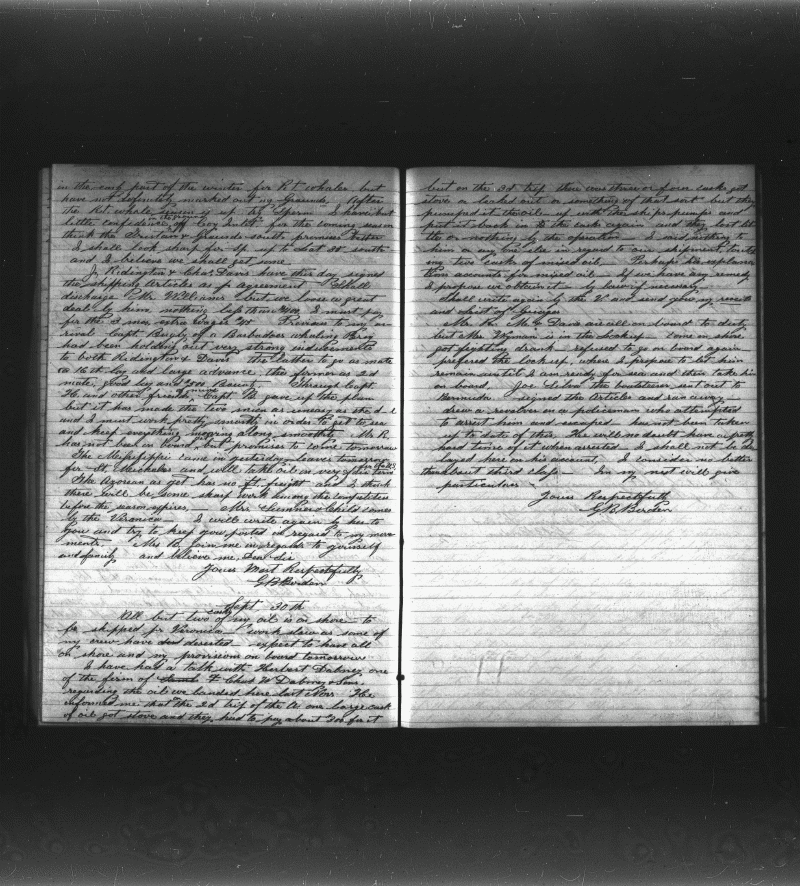 in the early part of the winter for Rt whales but
have not definitely marked out my Grounds. After
the Rt whale season is up try Sperm I have but
little confidence
that the River or Plume coast promise better
I shall look sharp for Sp up to Lat 38 south
and I believe we shall get some
J. Ridington & Chas Davis have this day signed
the shipping Articles as pr agreement Shall
discharge Mr Williams but we loose a great
deal by him nothing less than I must pay
for the 3 mos extra wages Previous to my ar
rival Capt. of a Barbadoes whaling Brig
had been holding out very strong inducements
to both Ridington & Davis the latter to go as mate
a 15th lay and large advance, the former as 2d
mate, good lay and Bount. Through Capt
H. and other friends Capt gave up the plan
but it has made the two men as uneasy as the d—l
and I must work pretty smartly in order to get to sea
and keep everything moving along smoothly Mr R.
has not been on board but promises to come tomorrow
The Mississippi came in yesterday leaves tomorrow
for St. Michaels and will take oil on very
The Azorean as yet has no ft freight and I think
there will be some sharp work among the competitors
before the season expires, Mrs Sumner & Child comes
by the Veronica I will write again by her to
you and try to keep you posted in regard to my move
ments. Mrs B. join me in regards to yourself
and family and believe me Dear Sir
Yours Most Respectfully
G B Borden
Sept 30th
All but two casks of my oil is on shore — to
be shipped pr Veronica work slow as some of
my crew have deserted expect to have all
on shore and my provisions on board tomorrow
I have had a talk with Herbert Dabney one
of the ferm of Chas W Dabney & Sons,
regarding the oil we landed here last Nov. He
informed me that the 2d trip of the A. one large cask
of oil got stove and they had to pay about for it
but on the 3d trip there was three or four casks got
stove or leaked out or something of that sort but they
pumped it the oil up with the ships pumps and
put it back in to the casks again and they lost lit
tle or nothing by the operation I said nothing to
him or any one else in regard to our shipment turning
my two casks of mixed oil Perhaps this explains
this accounts for mixed oil If we have any remedy
I propose we obtain it by law if necessary
Shall write again by the V and send you my receipts
and list of Gauges
Mr R. Mc & Davis are all on board to duty
but Mr Wyman is in the Lockup Come on shore,
got fighting drunk refused to go on board again
prefered the lock up, where I propose to let him
remain until I am ready for sea and then take him
on board. Joe Silva the boatsteerer sent out to
Bermuda signed the Articles and ran away
drew a revolver on a policeman who attempted
to arrest him and escaped has not been taken
up to date of this. He will no doubt have a pretty
hard time of it when arrested I shall not be de
layed here on his account I consider no better
than about third class In my next will give
particulars
Yours Respectfully
G. B. Borden